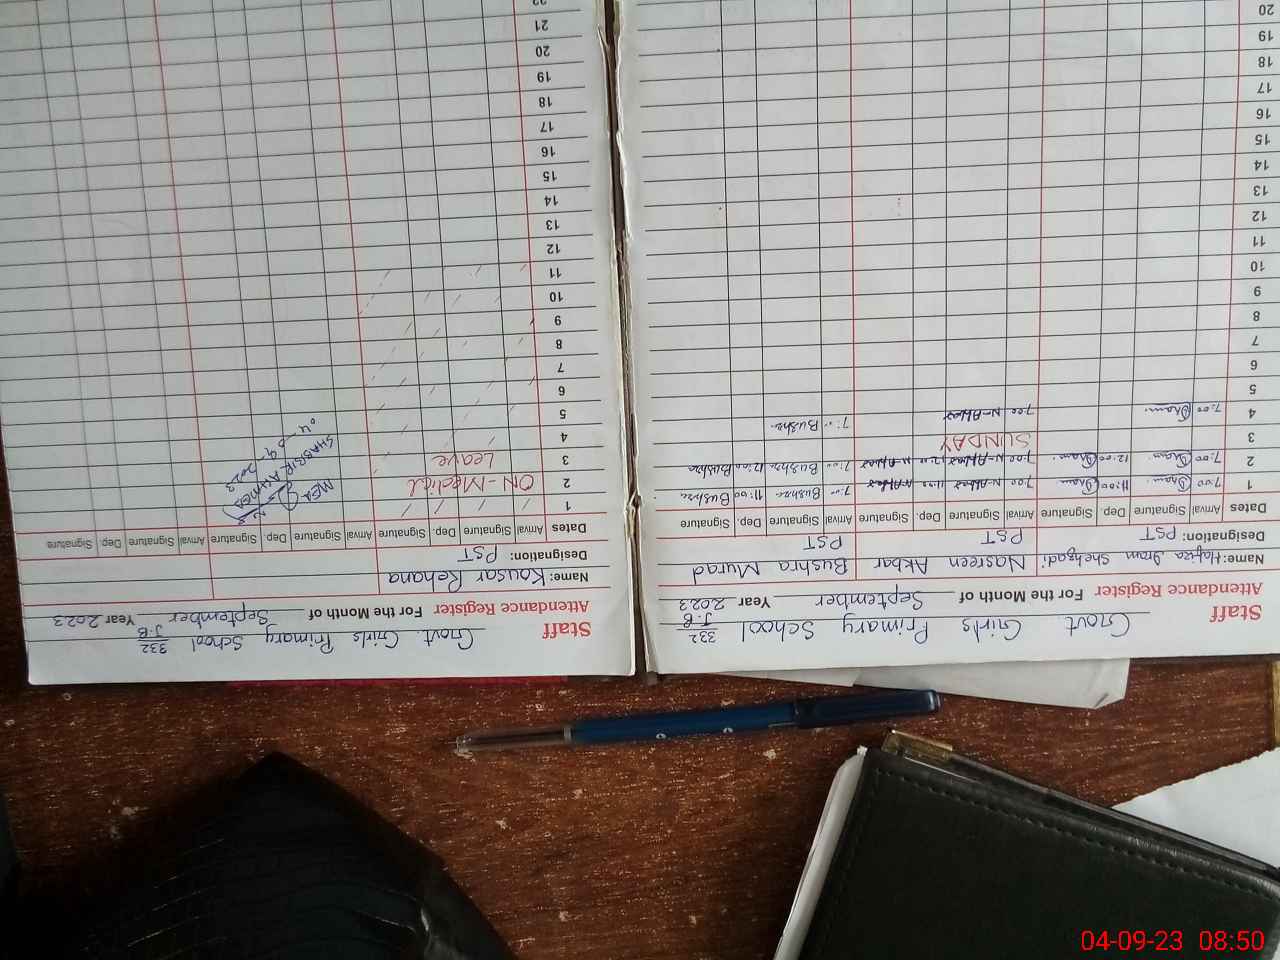 Govt. Girls Primary School 332 J.B
Staff
Attendance Register For the Month of September Year 2023
Name: Hafiza Iram Shehzadi Nasreen Akbar Bushra Murad
Designation: PST PST PST
Dates Arrival Signature Dep. Signature Arrival Signature Dep. Signature Arrival Signature Dep. Signature
1 7:00 Iram. 11:00 Iram. 7:00 N-Akbar 11:00 N-Akbar 7:00 Bushra 11:00 Bushra
2 7:00 Iram. 12:00 Iram. 7:00 N-Akbar 12:00 N-Akbar 7:00 Bushra 12:00 Bushra
3 SUNDAY
4 7:00 Iram. 7:00 N-Akbar 7:00 Bushra
5
6
7
8
9
10
11
12
13
14
15
16
17
18
19
20
Govt. Girls Primary School 332 J.B
Staff
Attendance Register For the Month of September Year 2023
Name: Kousar Rehana
Designation: PST
Dates Arrival Signature Dep. Signature Arrival Signature Dep. Signature Arrival Signature Dep. Signature
1
2 ON-Medical
3 Leave
4
5
6
7
8
9
10
11
12
13
14
15
16
17
18
19
20
21
22
MEA
SHABBIR AHMED
04-09-2023
04-09-23 08:50